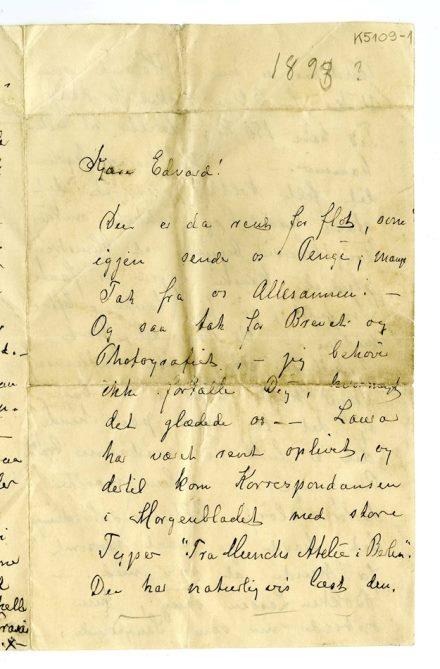 K5109-1
1893 ?
Kjære Edvard!
Du er da rent for flot, som
igjen sende os Penge; mange
Tak fra os Allesammen. —
Og saa tak for Brevet og
Photografiet, — jeg behøve
ikke fortælle Dig, hvormeget
det glædede os — Laura
har været rent oplivet, og
dertil kom Korrespondansen
i Morgenbladet med store
Typer "Fra Munchs Atelie i Berlin".
Du har naturligvis læst den.